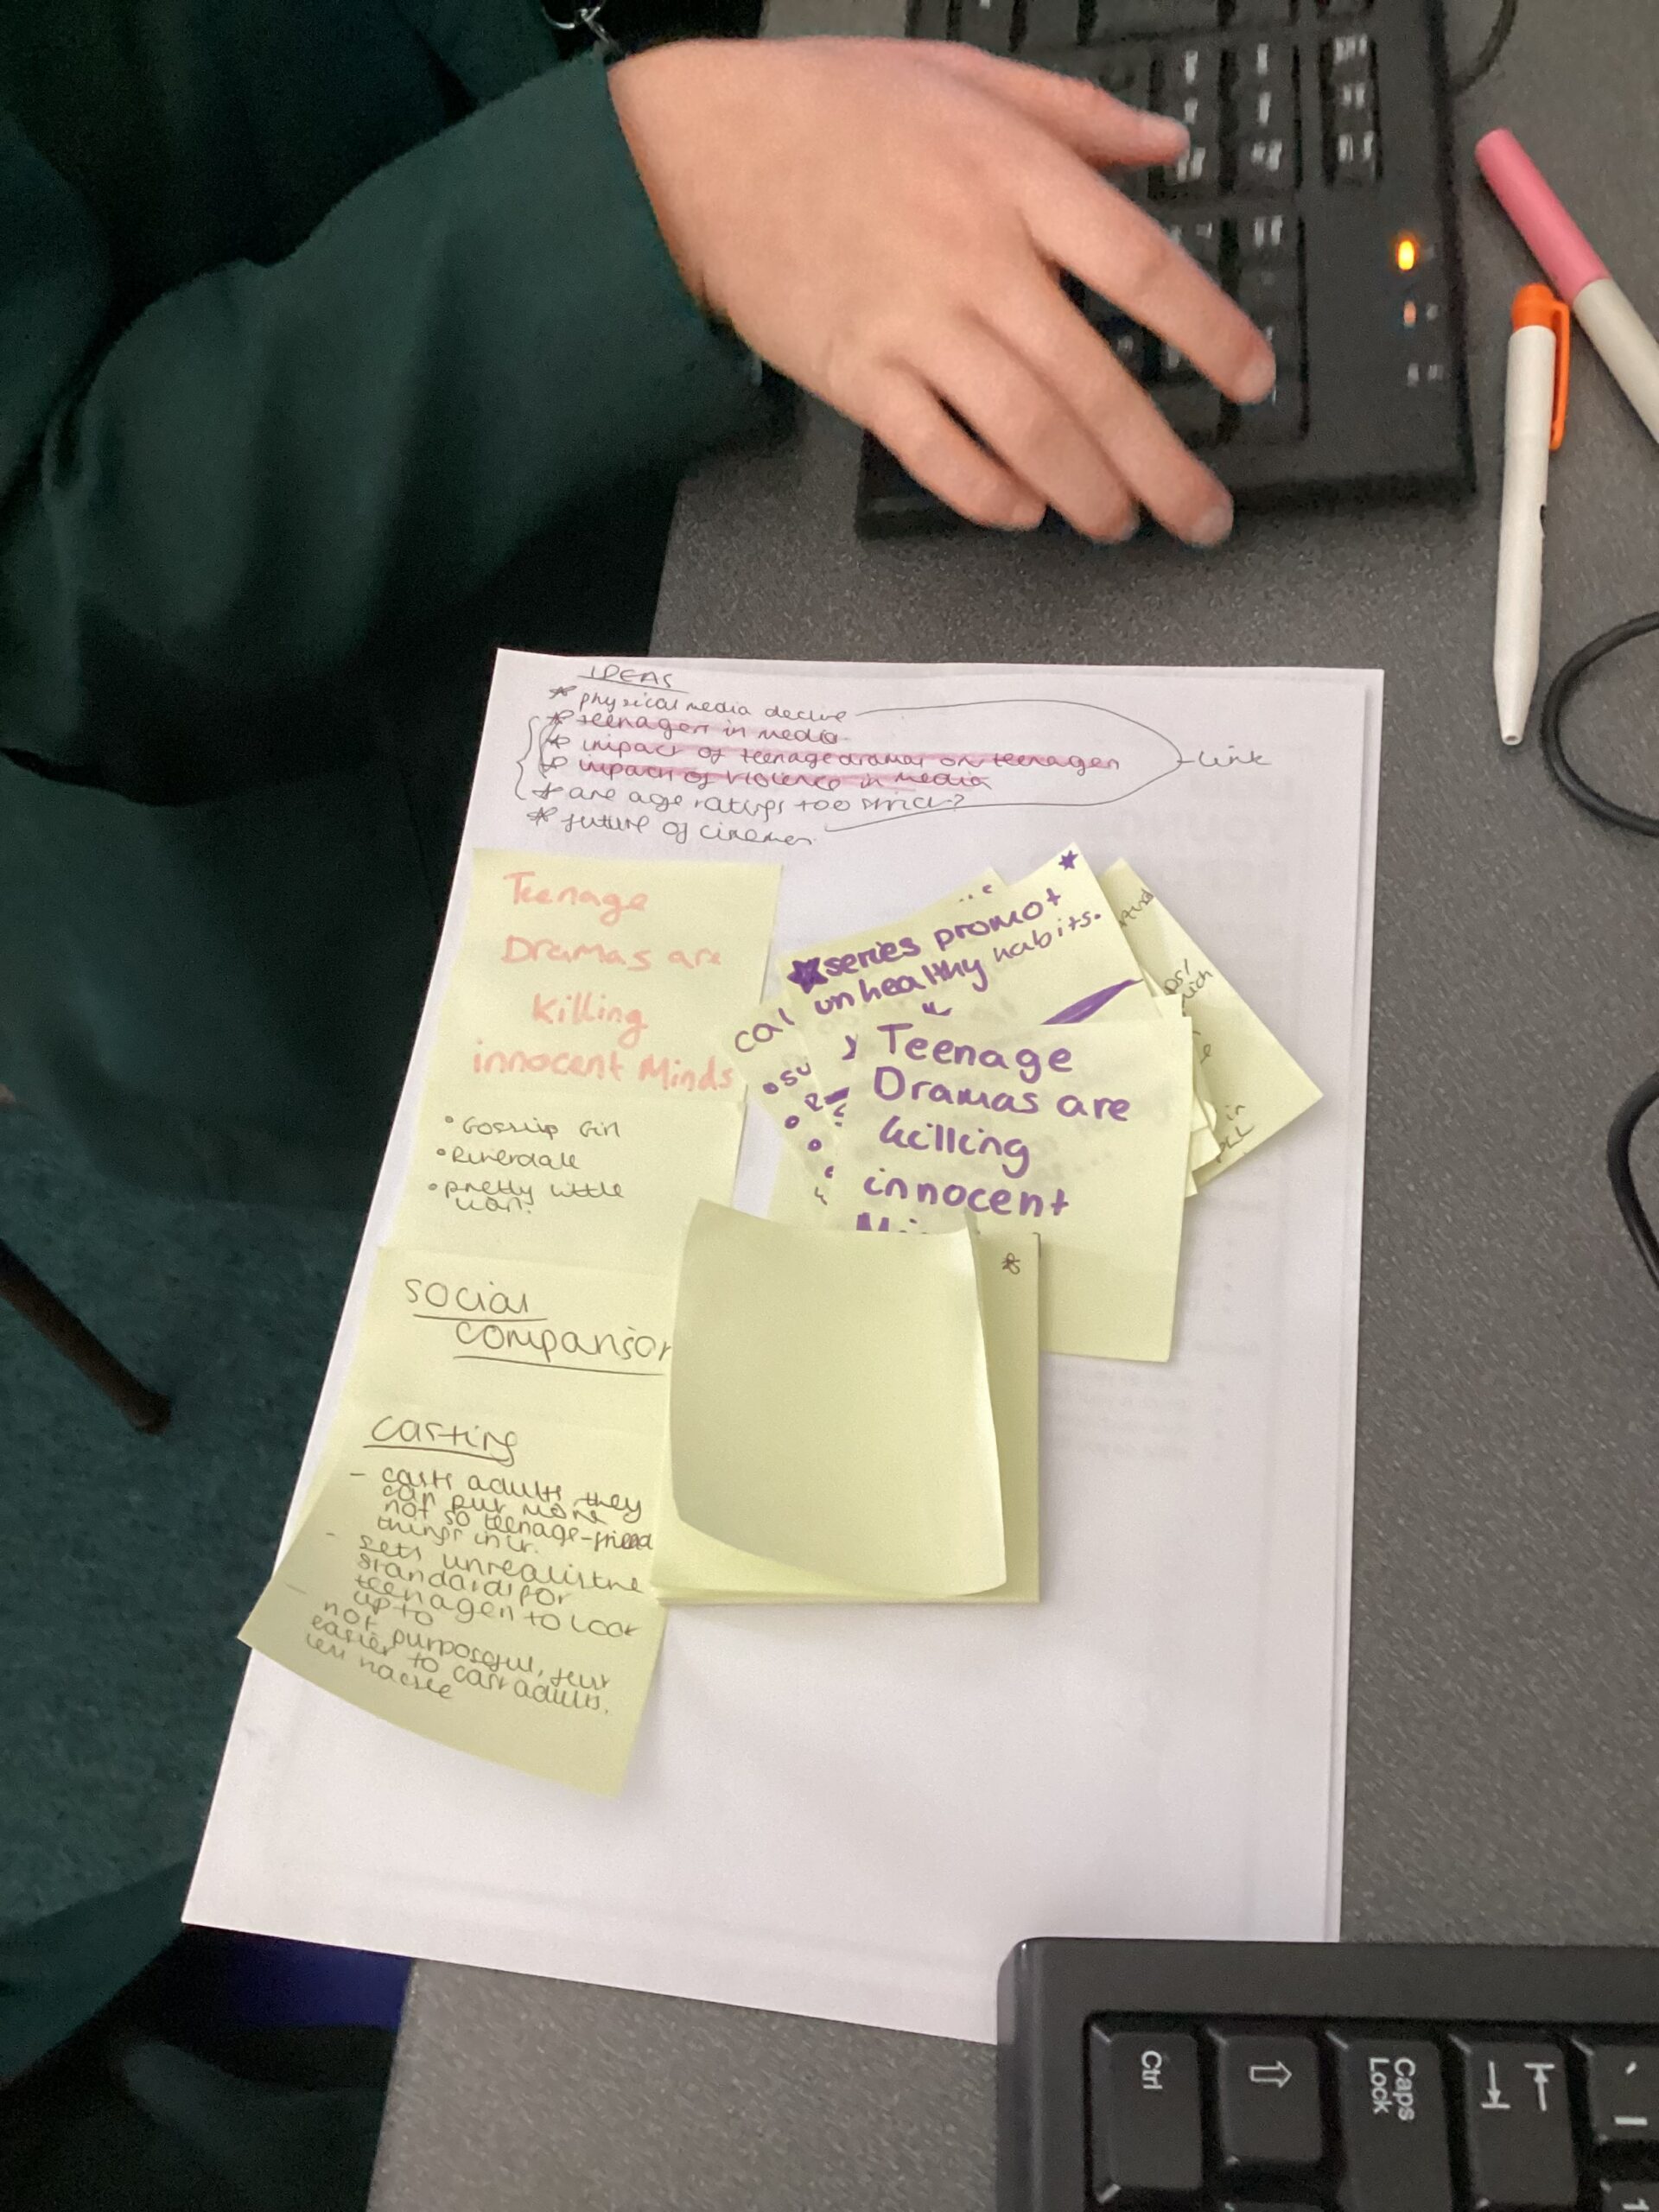 IDEAS
* physical media decline
* teenagers in media
* impact of teenage dramas on teenagers
* impact of violence in media
* are age ratings too strict?
* future of cinemas
link
Teenage
Dramas are
Killing
innocent Minds
• Gossip Girl
• Riverdale
• pretty little
liars
social
comparison
casting
- casts adults they
can put more
not so teenage-friend
things in it.
- sets unrealistic
standards for
teenagers to look
up to
- not purposeful, just
easier to cast adults.
★ series promot
unhealthy habits.
cal
• su
Teenage
Dramas are
killing
innocent
in
Ctrl
Caps
Lock